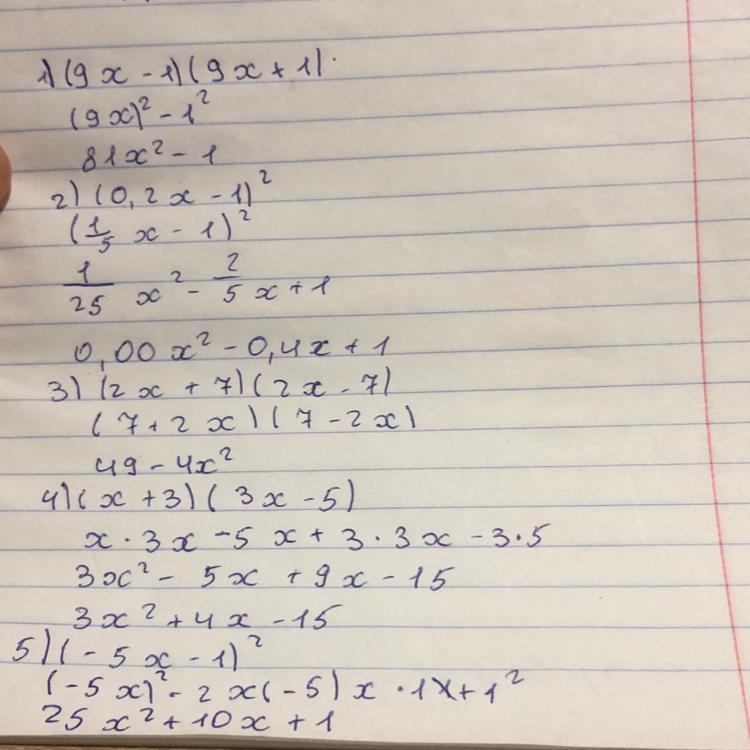 1) (9x - 1)(9x + 1).
(9x)² - 1²
81x² - 1
2) (0,2x - 1)²
(1/5 x - 1)²
1/25 x² - 2/5 x + 1
0,00x² - 0,4x + 1
3) (2x + 7)(2x - 7)
(7 + 2x)(7 - 2x)
49 - 4x²
4) (x + 3)(3x - 5)
x · 3x - 5x + 3 · 3x - 3 · 5
3x² - 5x + 9x - 15
3x² + 4x - 15
5) (- 5x - 1)²
(-5x)² - 2x(-5)x · 1x + 1²
25x² + 10x + 1